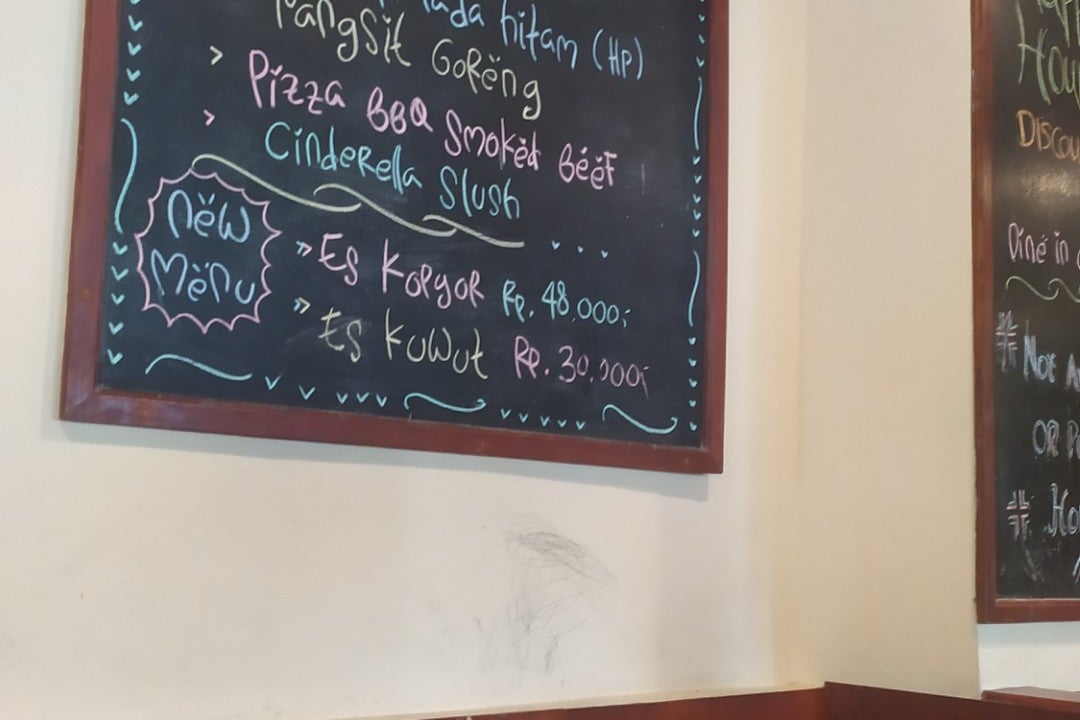 Lada hitam (HP)
Pangsit Gorëng
> Pizza BBQ Smokëd Bëëf
> Cinderella Slush
Nëw
Mënu
» Es Kopyor Rp. 48.000;
» Es Kuwut Rp. 30.000;
Discou
Dine in
Not A
OR P
Ho